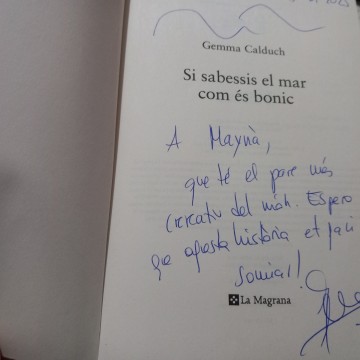 2023
Gemma Calduch
Si sabessis el mar
com és bonic
A Maynà,
que té el pare més
creatiu del món. Espero
que aquesta història et faci
somiar!
La Magrana